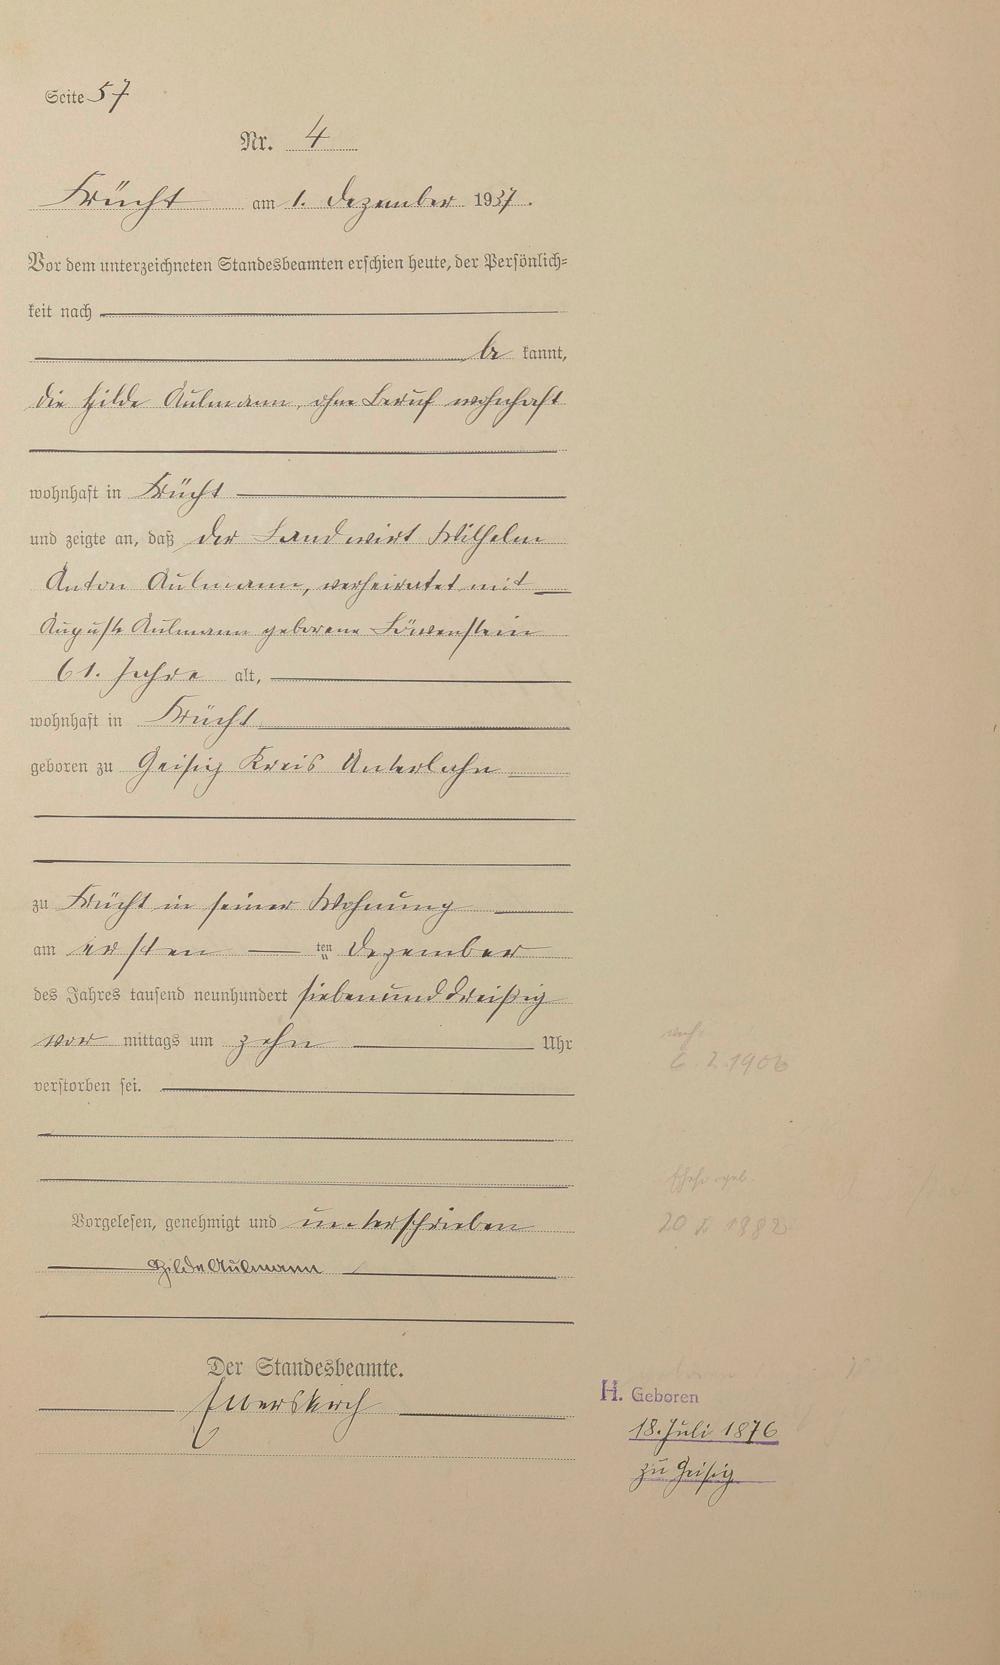 Seite 57
Nr. 4
Frücht am 1. Dezember 1937.
Vor dem unterzeichneten Standesbeamten erschien heute, der Persönlich=
keit nach
be kannt,
die Hilde Aulmann, ohne Beruf wohnhaft
wohnhaft in Frücht
und zeigte an, daß der Landwirt Wilhelm
Anton Aulmann, verheiratet mit
Auguste Aulmann geborene Löwenstein
61. Jahre alt,
wohnhaft in Frücht
geboren zu Geisig Kreis Unterlahn
zu Frücht in seiner Wohnung
am ersten ten Dezember
des Jahres tausend neunhundert siebenunddreißig
vor mittags um zehn Uhr
verstorben sei.
6. 2. 1906
Vorgelesen, genehmigt und unterschrieben
20 1882
Hilde Aulmann
Der Standesbeamte.
H. Geboren
18. Juli 1876
zu Geisig